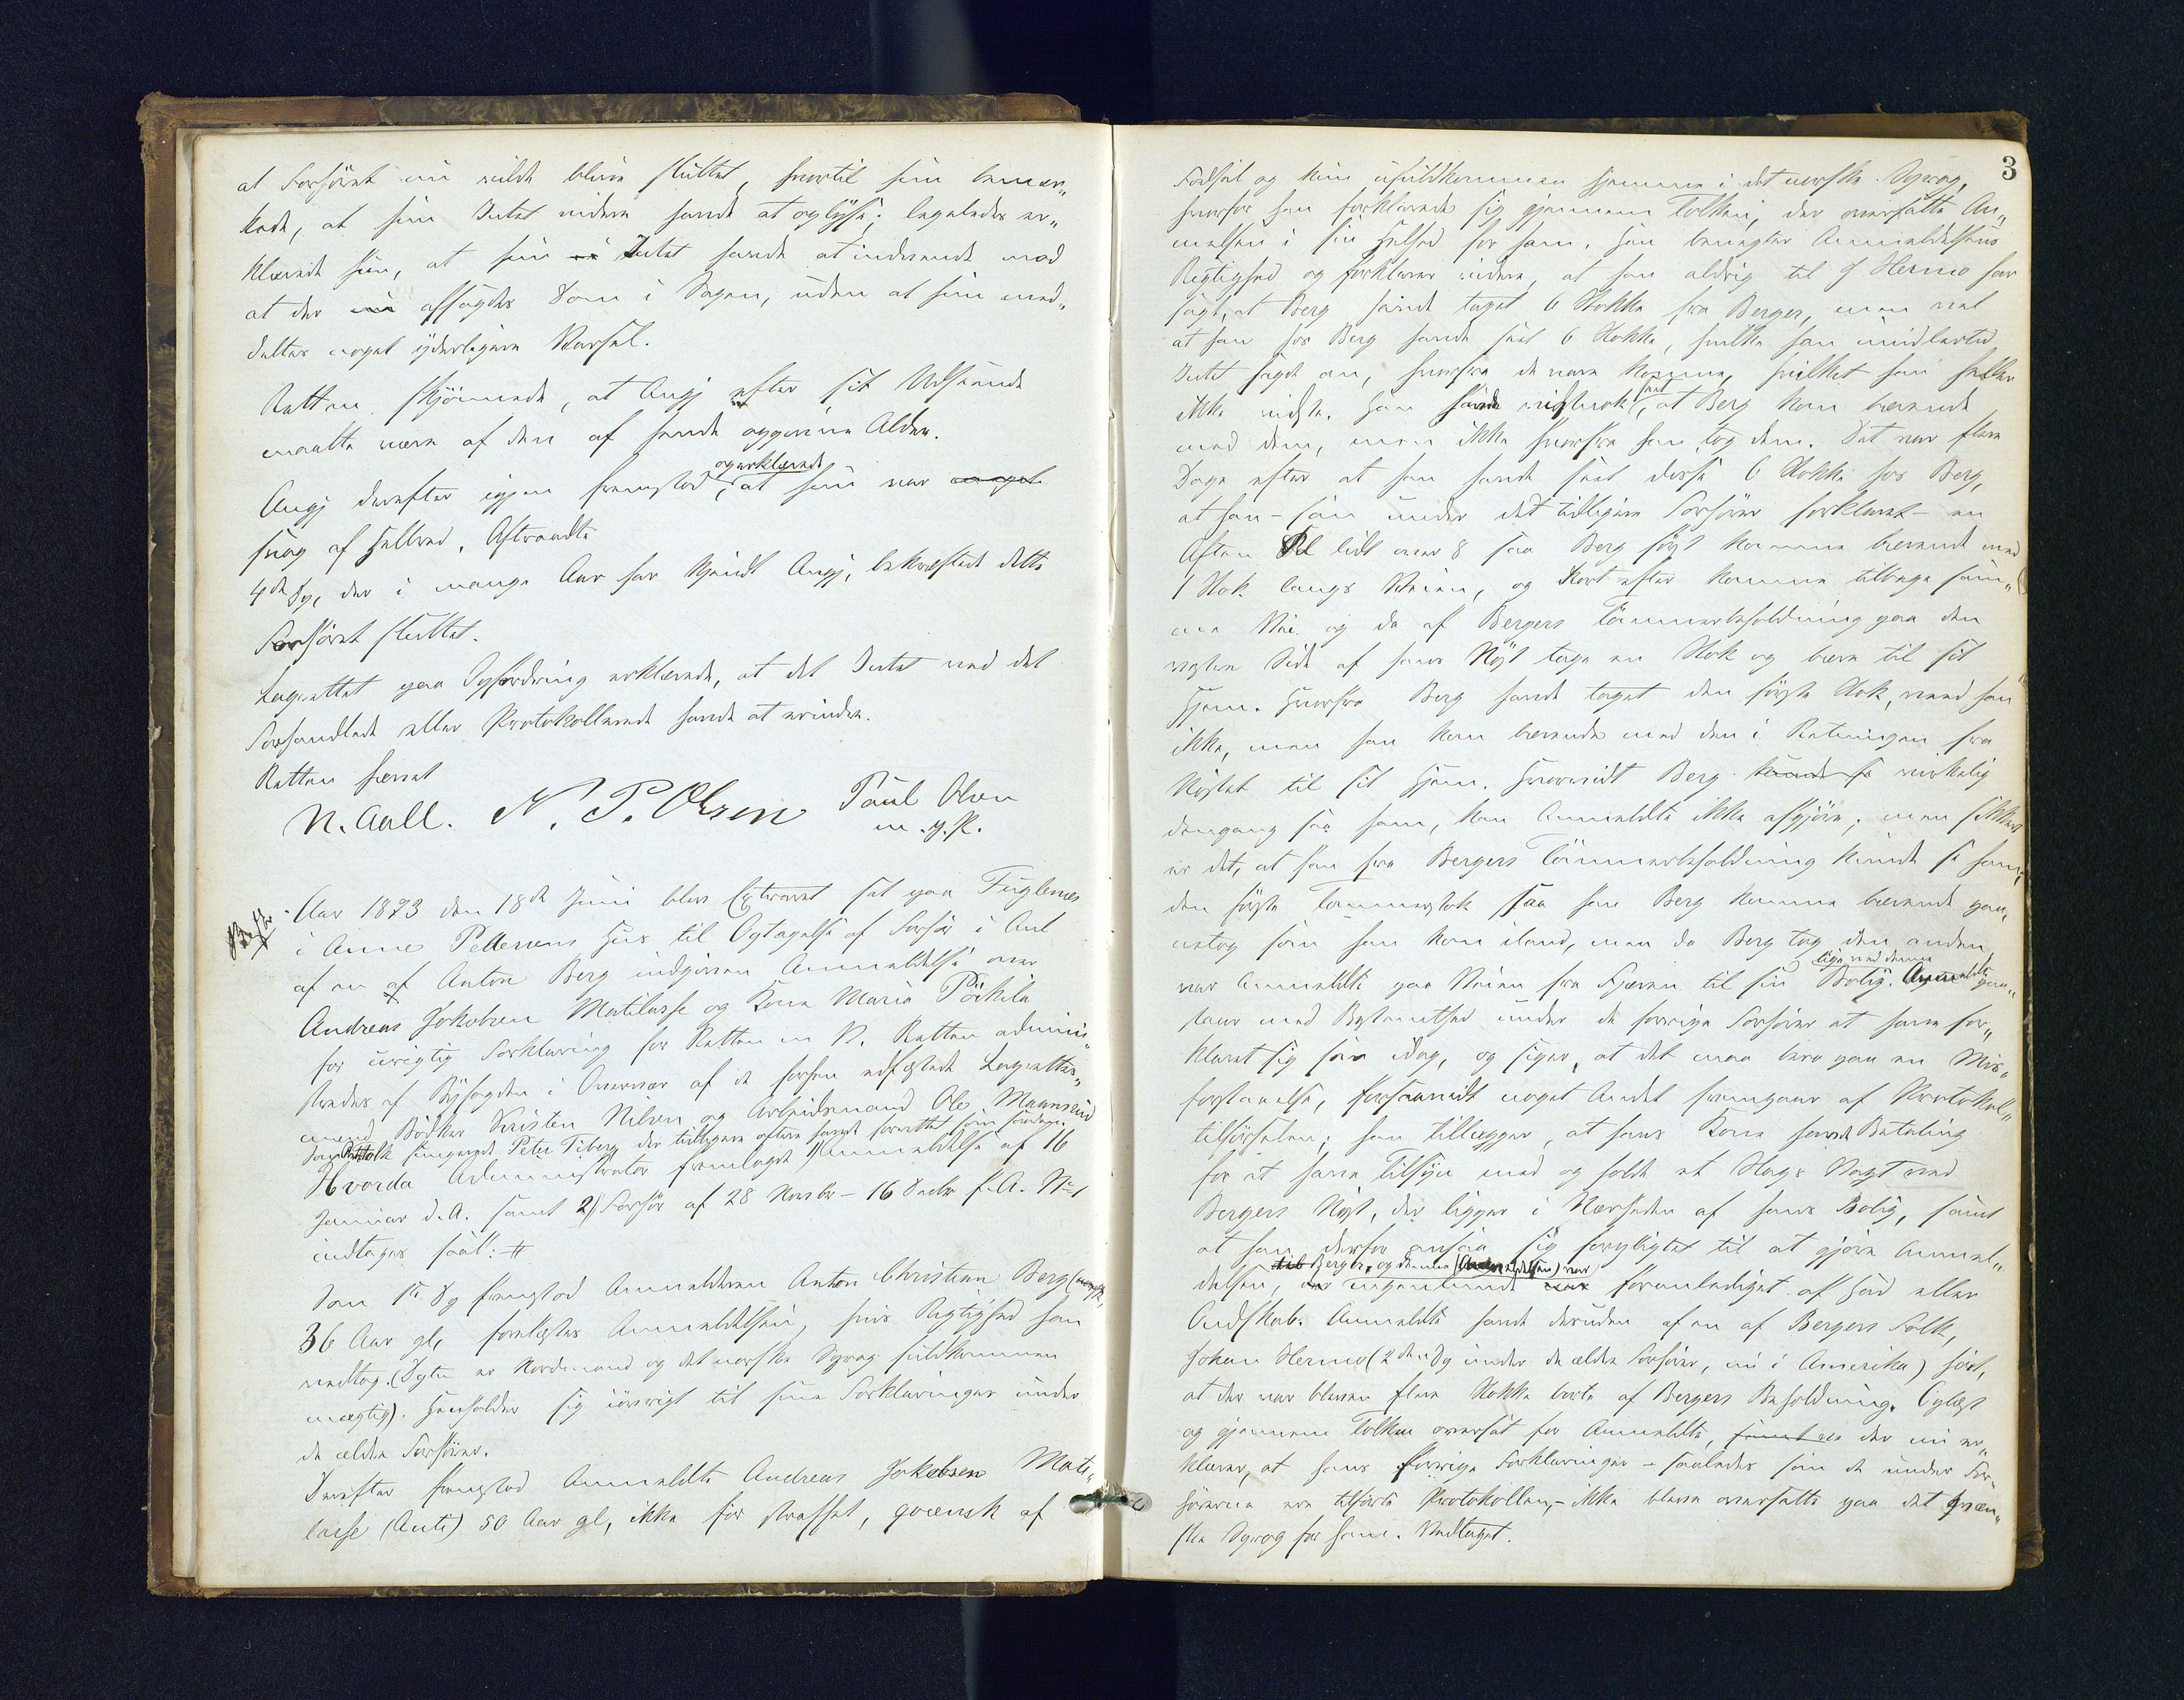 at Forhöret nu vilde blive sluttet, hvortil hun bemær„
kede, at hun Intet videre havde at oplyse; ligeledes er„
klærede hun, at hun Intet havde at indvende mod
at der afsagdes Dom i Sagen, uden at hun med„
deltes noget yderligere Varsel.
Retten skjönnede, at Angj efter sit Udseende
maatte være af den af hende opgivne Alder.
Angj derefter igjen fremstod og erklærede, at hun var meget
svag af Helbred. Astraadte
4de Vp, der i mange Aar har kjendt Angj, bekræftede dette
Forhöret sluttet.
Lagrettet paa Opfordring erklærede, at det Intet ved det
Forhandlede eller Protokollerede havde at erindre.
Retten hævet
N. Aall. N. P. Olsen Paul Olsen
m. p. P.
Aar 1873 den 18de Juni blev Extraret sat paa Fuglenes
i Anne Pettersens Hus til Optagelse af Forhör i Anl
af en af Anton Berg indgiven Anmeldelse over
Andreas Jakobsen Matilasse og Kone Maria Pörkila
for urigtig Forklaring for Retten m V. Retten admini„
stredes af Byfogden i Overvær af de forhen edfæstede Lagrettes„
mænd Bödker Kristen Nilsen og Arbeidsmand Ole Maansen
Som Rettstolk fungerede Peter Fiberg der tidligere oftere havde forrettet som saadan.
Hvorda Administrator fremlagde 1) Anmeldelse af 16
Januar d. A. samt 2) Forhör af 28 Novbr – 16 Decbr f. A. No 1
indtages saal: #
Som 1ste Vp fremstod Anmelderen Anton Christian Berg (norsk)
36 Aar gl, forelægtes Anmeldelsen, hvis Rigtighed han
vedtog. (Vptn er Nordmand og det norske Sprog fuldkommen
mægtig). Henholder sig iövrigt til sine Forklaringer under
de ældre Forhörer.
Derefter fremstod Anmeldte Andreas Jakobsen Mati„
lasse (Anti) 50 Aar gl, ikke för straffet, qvænsk af
3
Födsel og kun ufuldkommen hjemme i det norske Sprog,
hvorfor han forklarede sig gjennem Tolken, der oversatte An„
melsen i sin Helhed for ham. Han benegter Anmeldelsens
Rigtighed og forklarer videre, at han aldrig til J Hermo har
sagt, at Berg havde taget 6 Stokke fra Berger, men vel
at han hos Berg havde seet 6 Stokke, hvilke han imidlertid
Intet sagde om, hvorfra de vare komne, hvilket han heller
ikke vidste. Han saa vistnok, at Berg kom bærende
med dem, men ikke hvorfra han tog dem. Det var flere
Dage efter at han havde seet disse 6 Stokke hos Berg,
at han – som under det tidligere Forhörer forklaret – en
Aften Kl lidt over 8 saa Berg först komme bærende med
1 Stok langs Veien, og kort efter komme tilbage sam„
me Vei og da af Bergers Tömmerbeholdning paa den
vestre Side af hans Nöst tage en Stok og bære til sit
Hjem. Hvorfra Berg havde taget den förste Stok, veed han
ikke, men han kom bærende med den i Retningen fra
Nöstet til sit Hjem. Hvorvidt Berg virkelig
dengang saa ham, kan Anmeldte ikke afgjöre; men sikkert
er det, at han fra Bergers Tömmerbeholdning kunde se ham,
den förste Tömmerstok saa han Berg komme bærende paa,
netop som han kom iland, men da Berg tog den anden
var Anmeldte paa Veien fra Fjæren til sin Bolig. lige ved denne Anmeldte paa„
staar med Bestemthed under de forrige Forhörer at have for„
klaret sig som idag, og siger, at det maa bero paa en Mis„
forstaaelse, forsaavidt noget Andet fremgaar af Protokol„
tilförselen; han tillægger, at hans Kone havde Betaling
for at have Tilsyn med og holdt et Slags Vagt ved
Bergers Nöst, der ligger i Nærheden af hans Bolig, samt
at han derfor ansaa sig forpligtet til at gjöre Anmel„
delsen til Berger, og denne (Anmeldelsen) var ingenlunde foranlediget af Had eller
Avdskab. Anmeldte havde desuden af en af Bergers Folk,
Johan Hermo (2den Vp under de ældre Forhörer, nu i Amerika) hört,
at der var bleven flere Stokke borte af Bergers Beholdning. Oplæst
og gjennem Tolken oversat for Anmeldte, der nu er„
klærer, at hans forrige Forklaringer – saaledes som de under For„
hörerne ere tilförte Protokollen, – ikke bleve oversatte paa det qvæn„
ske Sprog for ham. Vedtaget.